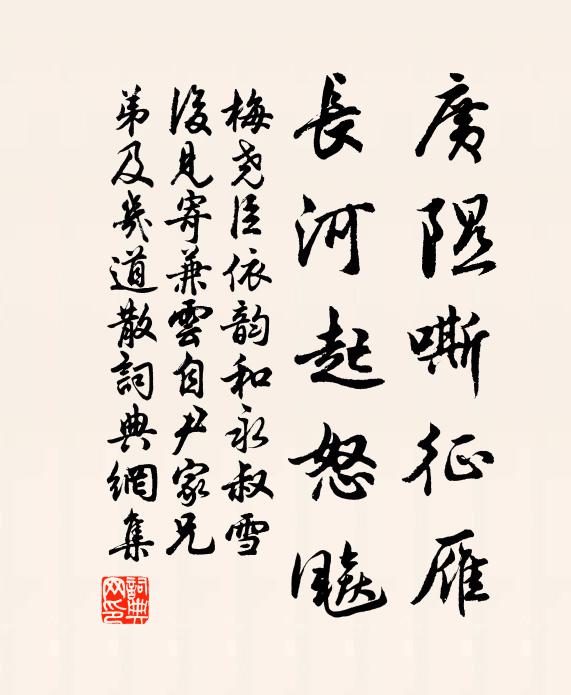 廣隰嘶征雁
長河起怒飈
梅堯臣依韵和永叔雪
後見寄兼雲自尹家兄
弟及幾道散詞典網集
詞典
网印